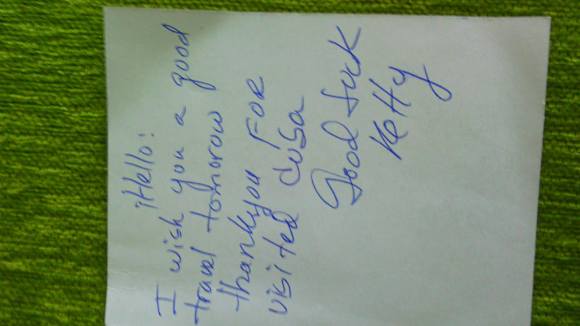 ¡Hello!
I wish you a good
travel tomorow
thankyou FOR
visited CUBA
Good luck
Ketty